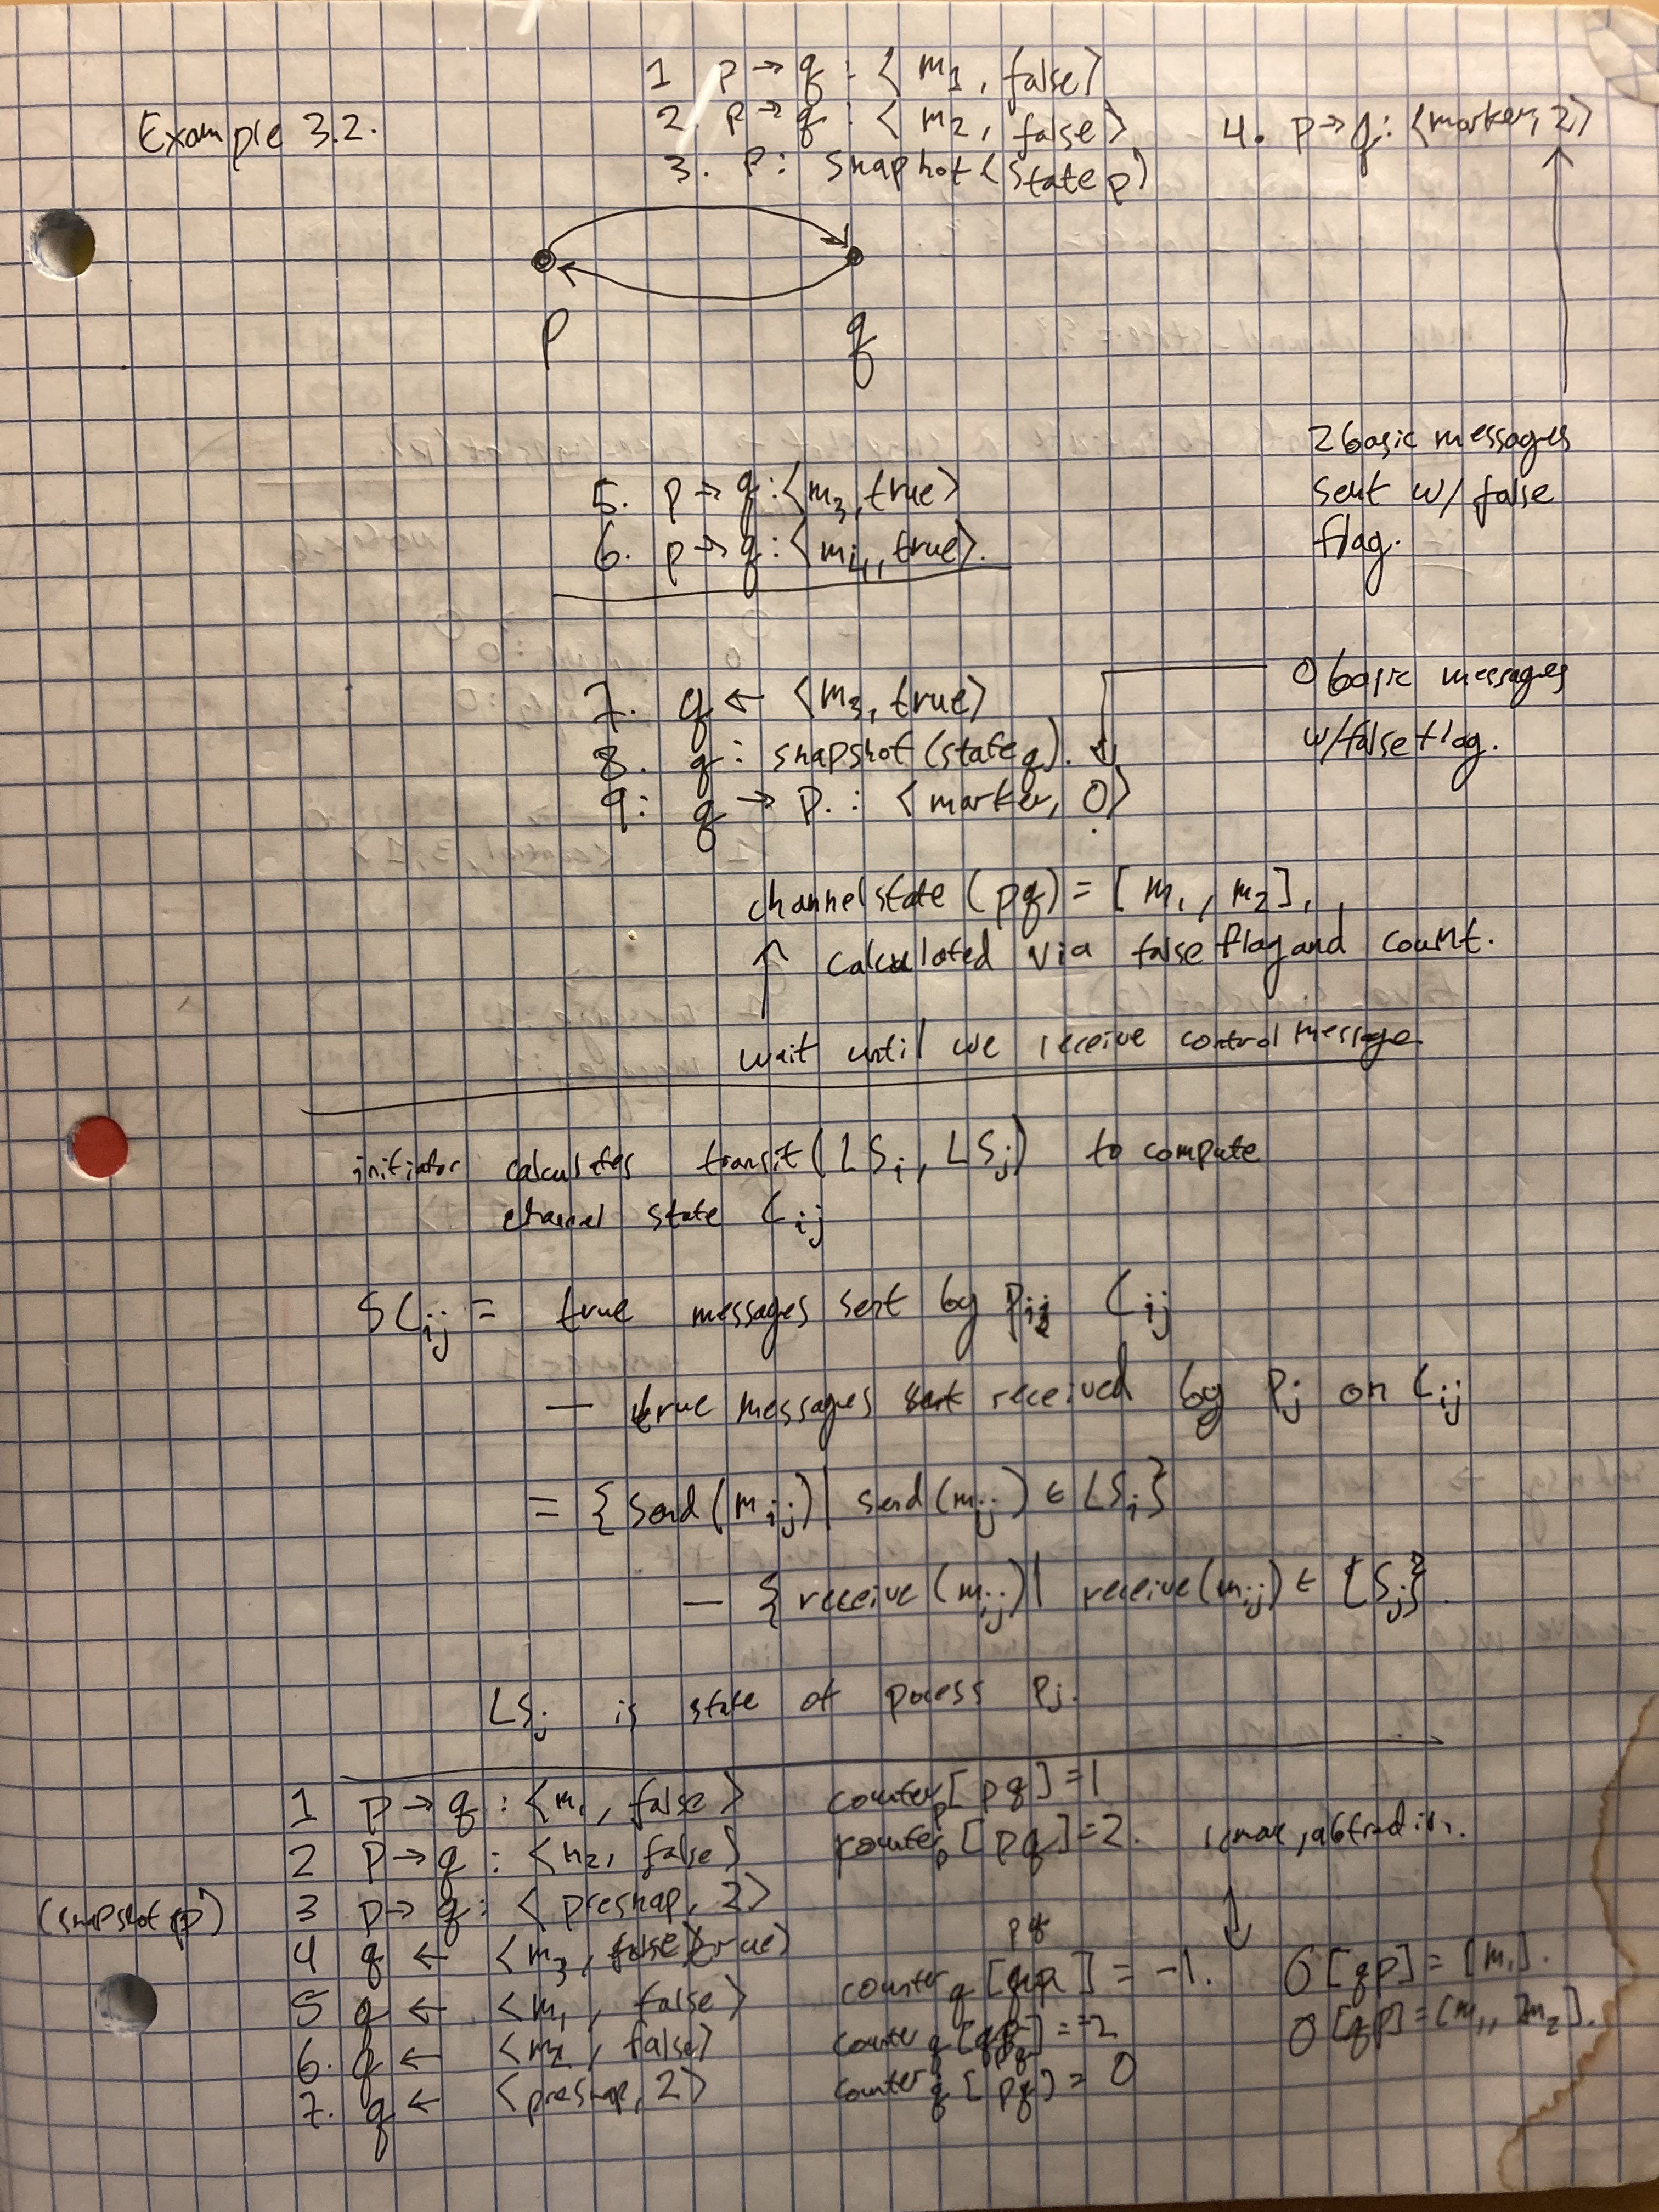 Example 3.2.
1 p → q : ⟨ m₁, false⟩
2. p → q : ⟨ m₂, false⟩
3. p: snapshot(state p)
4. p → q: ⟨marker, 2⟩
p
q
2 basic messages
sent w/ false
flag.
5. p → q : ⟨m₃, true⟩
6. p → q : ⟨m₄, true⟩.
0 basic messages
w/ false flag.
7. q ← ⟨m₃, true⟩
8. q : snapshot(state q).
9: q → p. : ⟨marker, 0⟩
channelstate (pq) = [m₁, m₂],
↑ calculated via false flag and count.
wait until we receive control message
initiator calculates transit(LSᵢ, LSⱼ) to compute
channel state Cᵢⱼ
SCᵢⱼ = true messages sent by pᵢ Cᵢⱼ
— true messages received by Pⱼ on Cᵢⱼ
= {send(mᵢⱼ) | send(mᵢⱼ) ∈ LSᵢ}
— {receive(mᵢⱼ) | receive(mᵢⱼ) ∈ LSⱼ}.
LSⱼ is state of pocess Pⱼ.
1 p → q : ⟨m₁, false⟩ counter_p[pq] = 1
2 p → q : ⟨m₂, false⟩ counter_p[pq] = 2.
(snapshot p) 3 p → q: ⟨ presnap, 2⟩
4 q ← ⟨m₃, true⟩
5 q ← ⟨m₁, false⟩ counter_q [pq] = -1. σ[qp] = [m₁].
6. q ← ⟨m₂, false⟩ counter_q [pq] = -2 σ[qp] = [m₁, m₂].
7. q ← ⟨presnap, 2⟩ counter_q [pq] = 0